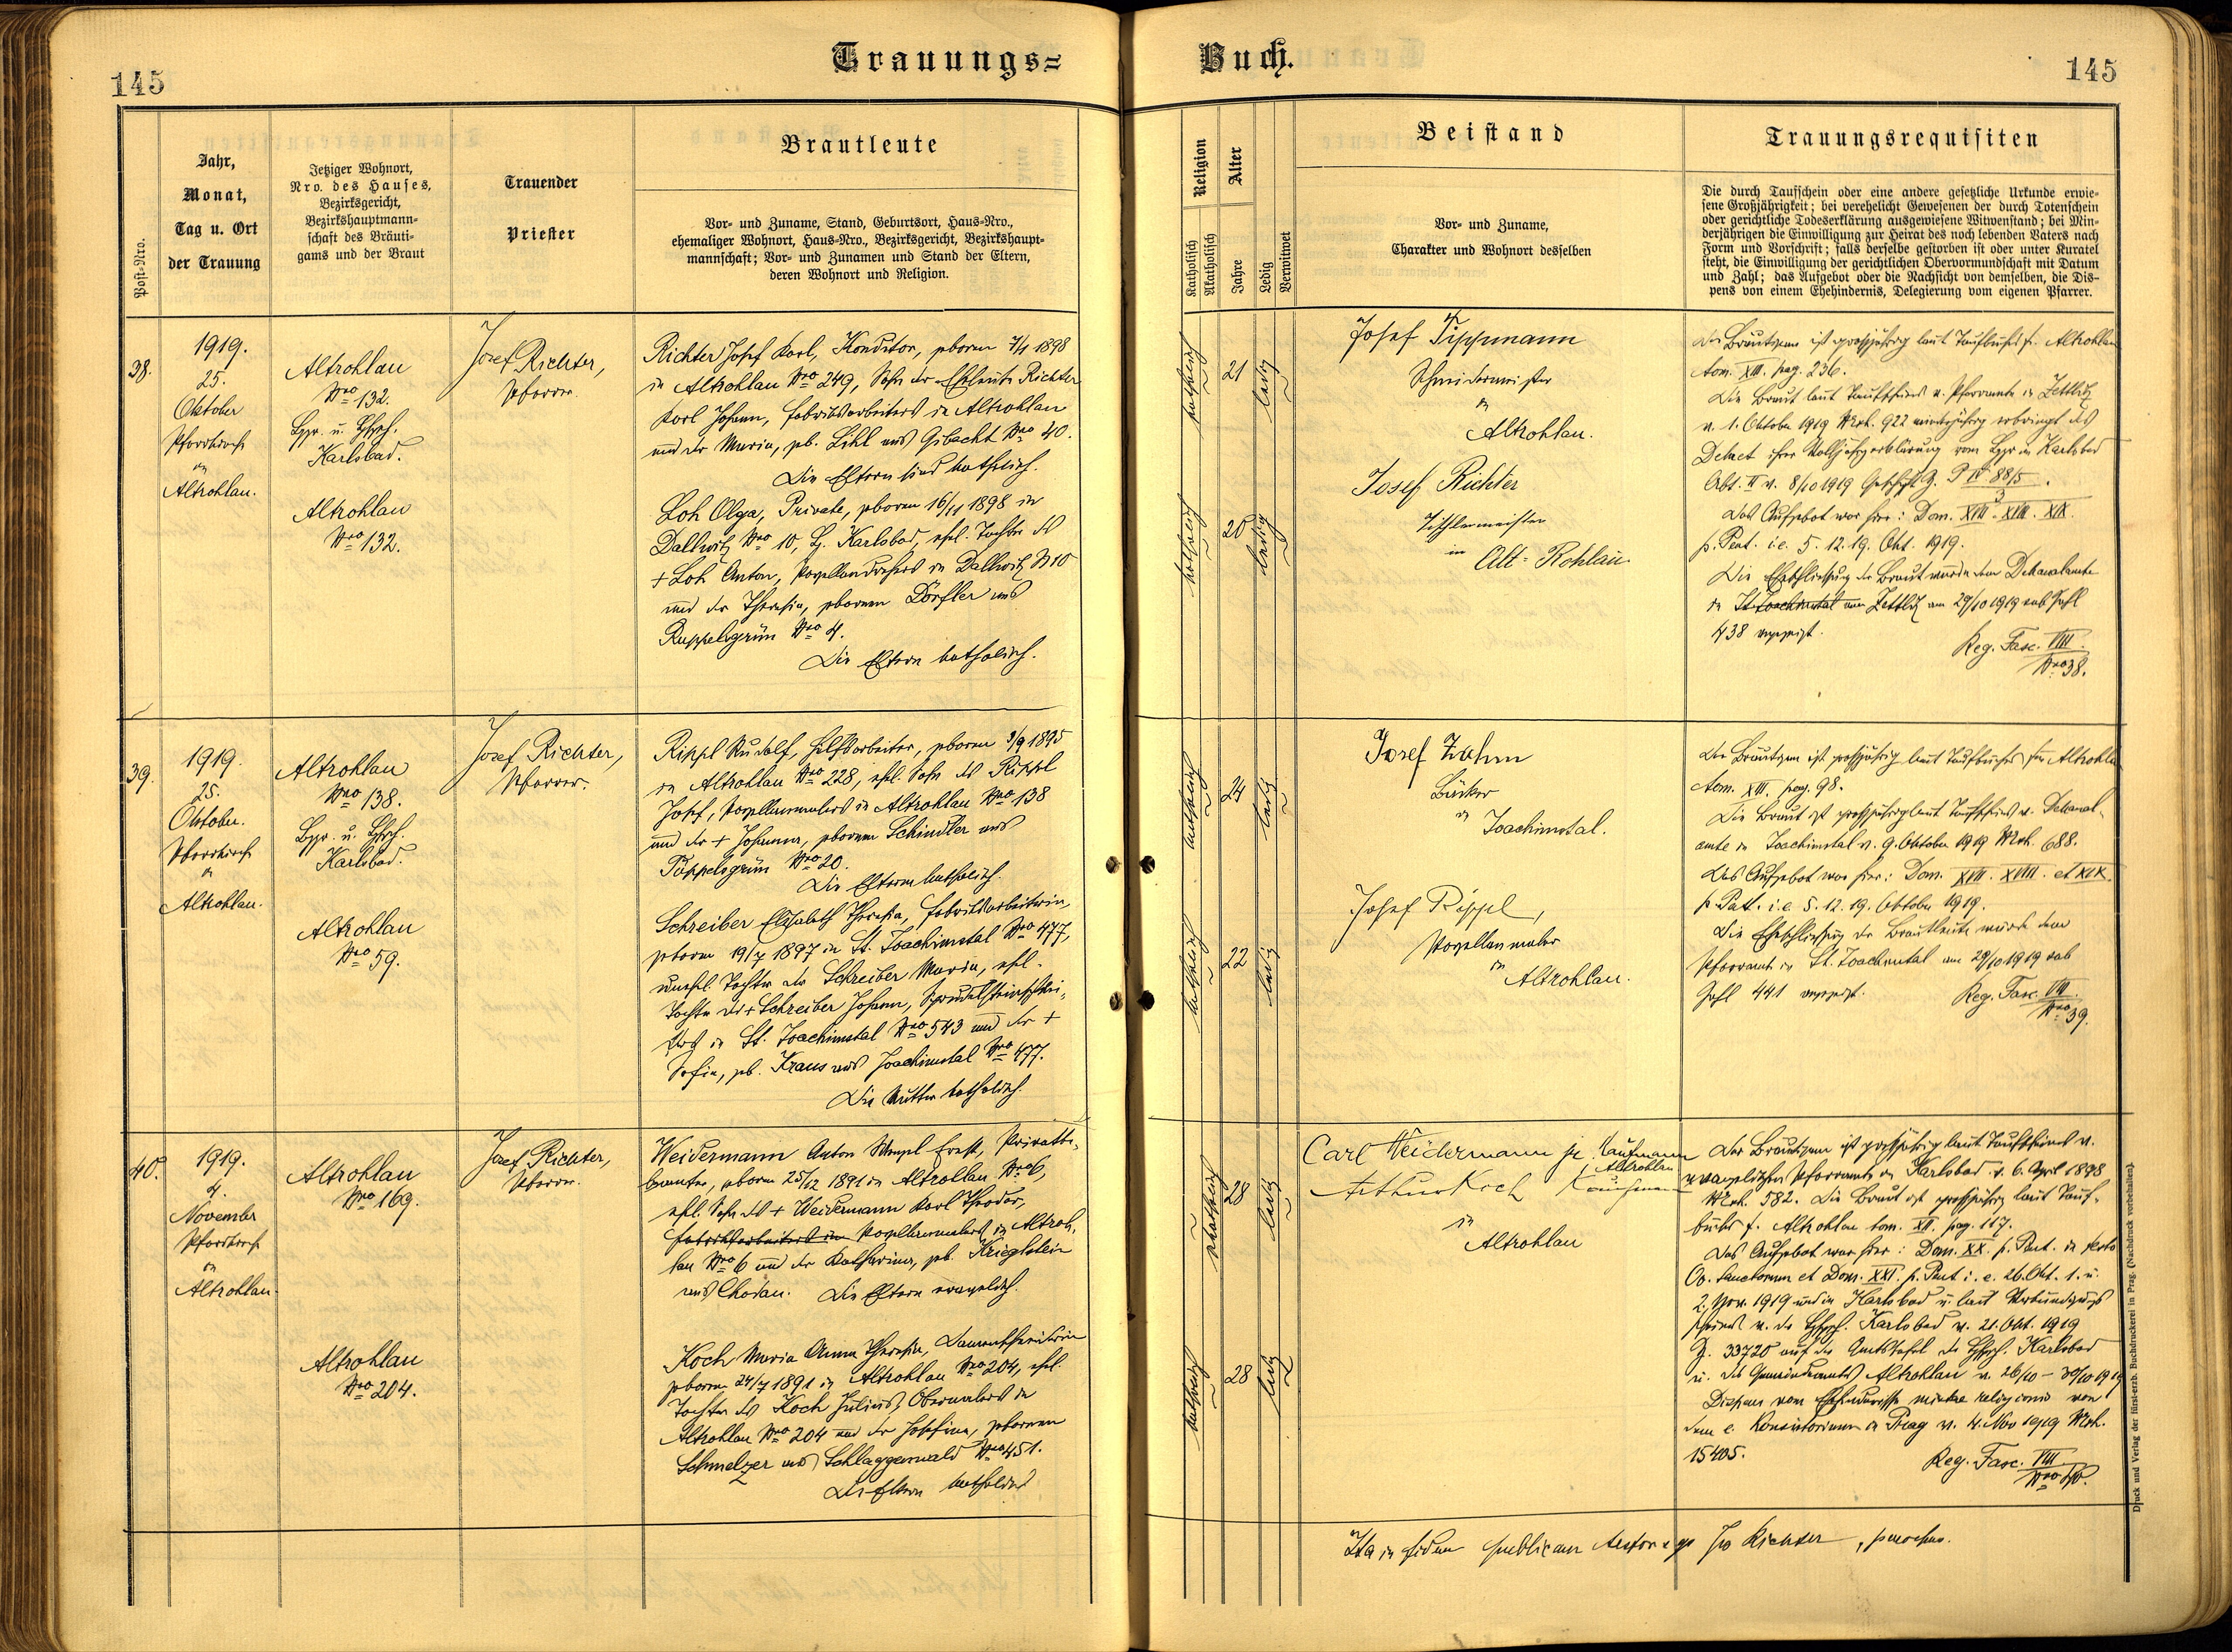 Trauungs=
Buch.
145
145
Post-Nro.
Jahr,
Monat,
Tag u. Ort
der Trauung
Jetziger Wohnort,
Nro. des Hauses,
Bezirksgericht,
Bezirkshauptmann=
schaft des Bräuti=
gams und der Braut
Trauender
Priester
Brautleute
Vor= und Zuname, Stand, Geburtsort, Haus=Nro.,
ehemaliger Wohnort, Haus=Nro., Bezirksgericht, Bezirkshaupt=
mannschaft; Vor= und Zunamen und Stand der Eltern,
deren Wohnort und Religion.
Religion
Katholisch
Akatholisch
Alter
Jahre
Ledig
Verwitwet
Beistand
Vor= und Zuname,
Charakter und Wohnort desselben
Trauungsrequisiten
Die durch Taufschein oder eine andere gesetzliche Urkunde erwie=
sene Großjährigkeit; bei verehelicht Gewesenen der durch Totenschein
oder gerichtliche Todeserklärung ausgewiesene Witwenstand; bei Min=
derjährigen die Einwilligung zur Heirat des noch lebenden Vaters nach
Form und Vorschrift; falls derselbe gestorben ist oder unter Kuratel
steht, die Einwilligung der gerichtlichen Obervormundschaft mit Datum
und Zahl; das Aufgebot oder die Nachsicht von demselben, die Dis=
pens von einem Ehehindernis, Delegierung vom eigenen Pfarrer.
38.
1919.
25.
Oktober
Pfarrkirche
in
Altrohlau.
Altrohlau
Nro 132.
Karlsbad.
Altrohlau
Nro 132.
Josef Richter,
Pfarrer.
Richter Josef Karl, Konditor, geboren 1898
in Altrohlau Nro 249, Sohn der Eheleute Richter
Karl Johann, Fabriksarbeiters in Altrohlau
und der Maria, geb. Lihl aus Gibacht Nro 40.
Die Eltern sind katholisch.
Loh Olga, Private, geboren 16/11 1898 in
Dallwitz Nro 10, B. Karlsbad, ehel. Tochter des
+ Loh Anton, Porzellandrehers in Dallwitz N 10
und der Theresia, geborenen Dörfler aus
Ruppelsgrün Nro 4.
Die Eltern katholisch.
katholisch
21
ledig
katholisch
20
ledig
Josef Tippmann
Schneidermeister
in
Altrohlau.
Josef Richter
Tischlermeister
in Alt-Rohlau
Der Bräutigam ist großjährig laut Taufbuches f. Altrohlau
tom. XIII. pag. 236.
Die Braut laut Taufscheines v. Pfarramte in Zettlitz
v. 1. Oktober 1919 Nrexh. 922 minderjährig erbringt das
Dekret ihrer Volljährigerklärung vom in Karlsbad
Abt. II v. 8/10 1919 P IV 88/5.
3
Das Aufgebot war hier: Dom. XVII. XVIII. XIX.
p. Pent. i.e. 5. 12. 19. Okt. 1919.
Die Eheschließung der Braut wurde dem Dekanalamte
in St. Joachimstal Zettlitz am 29/10 1919 sub Zahl
438 angezeigt.
Reg. Fasc. VIII
Nro 38.
39.
1919.
25.
Oktober.
Pfarrkirche
in
Altrohlau.
Altrohlau
Nro 138.
Karlsbad.
Altrohlau
Nro 59.
Josef Richter,
Pfarrer.
Rippl Rudolf, Hilfsarbeiter, geboren 3/9 1895
in Altrohlau Nro 228, ehel. Sohn des Rippl
Josef, Porzellanmalers in Altrohlau Nro 138
und der + Johanna, geborenen Schindler aus
Töppelsgrün Nro 20.
Die Eltern katholisch.
Schreiber Elisabeth Theresia, Fabriksarbeiterin,
geboren 19/7 1897 in St. Joachimstal Nro 477,
unehel. Tochter der Schreiber Maria, ehel.
Tochter des + Schreiber Johann,
in St. Joachimstal Nro 543 und der +
Sofia, geb. Kraus aus Joachimstal Nro 477.
Die Mutter katholisch.
katholisch
24
ledig
katholisch
22
ledig
Josef Zahm
Bäcker
in
Joachimstal.
Josef Rippl,
Porzellanmaler
in
Altrohlau.
Der Bräutigam ist großjährig laut Taufbuches für Altrohlau
tom. XIII. pag. 98.
Die Braut ist großjährig laut Taufscheines v. Dekanal-
amte in Joachimstal v. 9. Oktober 1919 Nrexh. 688.
Das Aufgebot war hier: Dom. XVII. XVIII. et XIX.
p. Pent. i.e. 5. 12. 19. Oktober 1919.
Die Eheschließung der Brautleute wurde dem
Pfarramte in St. Joachimstal am 29/10 1919 sub
Zahl 441 angezeigt.
Reg. Fasc. VIII.
Nro 39.
40.
1919.
4.
November
Pfarrkirche
in
Altrohlau
Altrohlau
Nro 169.
Altrohlau
Nro 204.
Josef Richter,
Pfarrer.
Weidermann Anton Wenzl Ernst, Privatbe-
amter, geboren 25/12 1891 in Altrohlau Nro 6,
ehel. Sohn des + Weidermann Karl Theodor,
Fabriksarbeiters in Porzellanmalers in Altroh-
lau Nro 6 und der Katharina, geb. Krieglstein
aus Chodau. Die Eltern evangelisch.
Koch Maria Anna Theresia, Damenschneiderin
geboren 24/7 1891 in Altrohlau Nro 204, ehel.
Tochter des Koch Julius, Obermalers in
Altrohlau Nro 204 und der Josefina, geborenen
Schmelzer aus Schlaggenwald Nro 451.
Die Eltern katholisch
akatholisch
28
ledig
katholisch
28
ledig
Carl Weidermann jr. Kaufmann
Altrohlau
Arthur Koch Kaufmann
in
Altrohlau
Der Bräutigam ist großjährig laut Taufscheines v.
evangelischen Pfarramte in Karlsbad v. 6. April 1898
Nrexh. 582. Die Braut ist großjährig laut Tauf-
buches f. Altrohlau tom. XII. pag. 117.
Das Aufgebot war hier: Dom. XX. p. Pent. in festo
Oo. Sanctorum et Dom. XXI. p. Pent i. e. 26. Okt. 1. u.
2. Nov. 1919 und in Karlsbad u. laut Verkündigungs
scheines v. der Karlsbad v. 21. Okt. 1919
Z. 33720 auf der Amtstafel der Karlsbad
u. des Gemeindeamtes Altrohlau v. 26/10 - 30/10 1919
Dispens vom Ehehindernisse mixtae religionis von
dem e. Konsistorium in Prag v. 4. Nov 1919 Nrexh.
15405.
Reg. Fasc. VIII
Nro 40.
Ita in fidem publicam testor ego Jos Richter, parochus.
Druck und Verlag der fürst-erzb. Buchdruckerei in Prag. (Nachdruck vorbehalten.)